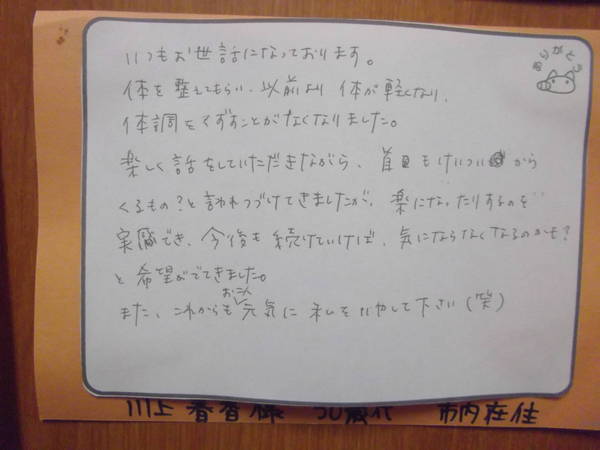 ありがとう
いつもお世話になっております。
体を整えてもらい、以前より 体が軽くなり、
体調をくずすことがなくなりました。
楽しく話をしていただきながら、首も けいついから
くるもの?と言われつづけてきましたが、楽になったりするのを
実感でき、今後も続けていけば、気にならなくなるのかも?
と希望がでてきました。
また、これからも おこん 元気に 私をいやして下さい(笑)
川上 春香様 50歳代 市内在住